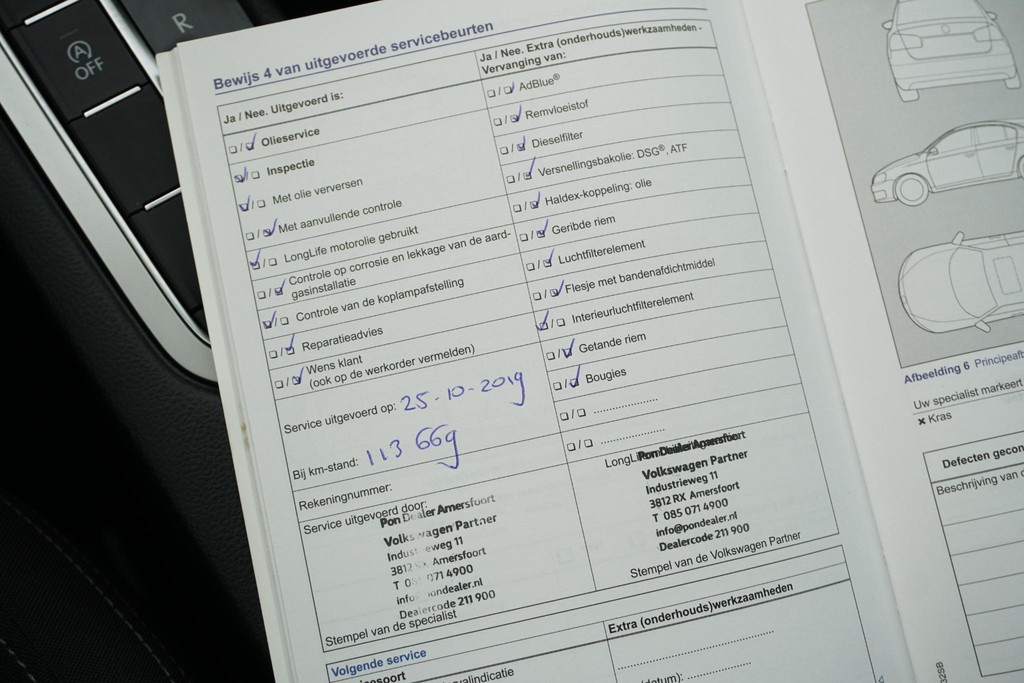 R
A
OFF
Bewijs 4 van uitgevoerde servicebeurten
Ja / Nee. Uitgevoerd is:
Olieservice
Inspectie
Met olie verversen
Met aanvullende controle
LongLife motorolie gebruikt
Controle op corrosie en lekkage van de aard-
gasinstallatie
Controle van de koplampafstelling
Reparatieadvies
Wens klant
(ook op de werkorder vermelden)
Service uitgevoerd op: 25-10-2019
Bij km-stand: 113 669
Rekeningnummer:
Service uitgevoerd door:
Pon Dealer Amersfoort
Volkswagen Partner
Industrieweg 11
3812 RX Amersfoort
T 085 071 4900
info@pondealer.nl
Dealercode 211 900
Stempel van de specialist
Ja / Nee. Extra (onderhouds)werkzaamheden -
Vervanging van:
AdBlue®
Remvloeistof
Dieselfilter
Versnellingsbakolie: DSG®, ATF
Haldex-koppeling: olie
Geribde riem
Luchtfilterelement
Flesje met bandenafdichtmiddel
Interieurluchtfilterelement
Getande riem
Bougies
Pon Dealer Amersfoort
Volkswagen Partner
Industrieweg 11
3812 RX Amersfoort
T 085 071 4900
info@pondealer.nl
Dealercode 211 900
Stempel van de Volkswagen Partner
Volgende service
Extra (onderhouds)werkzaamheden
Afbeelding 6
Uw specialist markeert
× Kras
Defecten
Beschrijving van